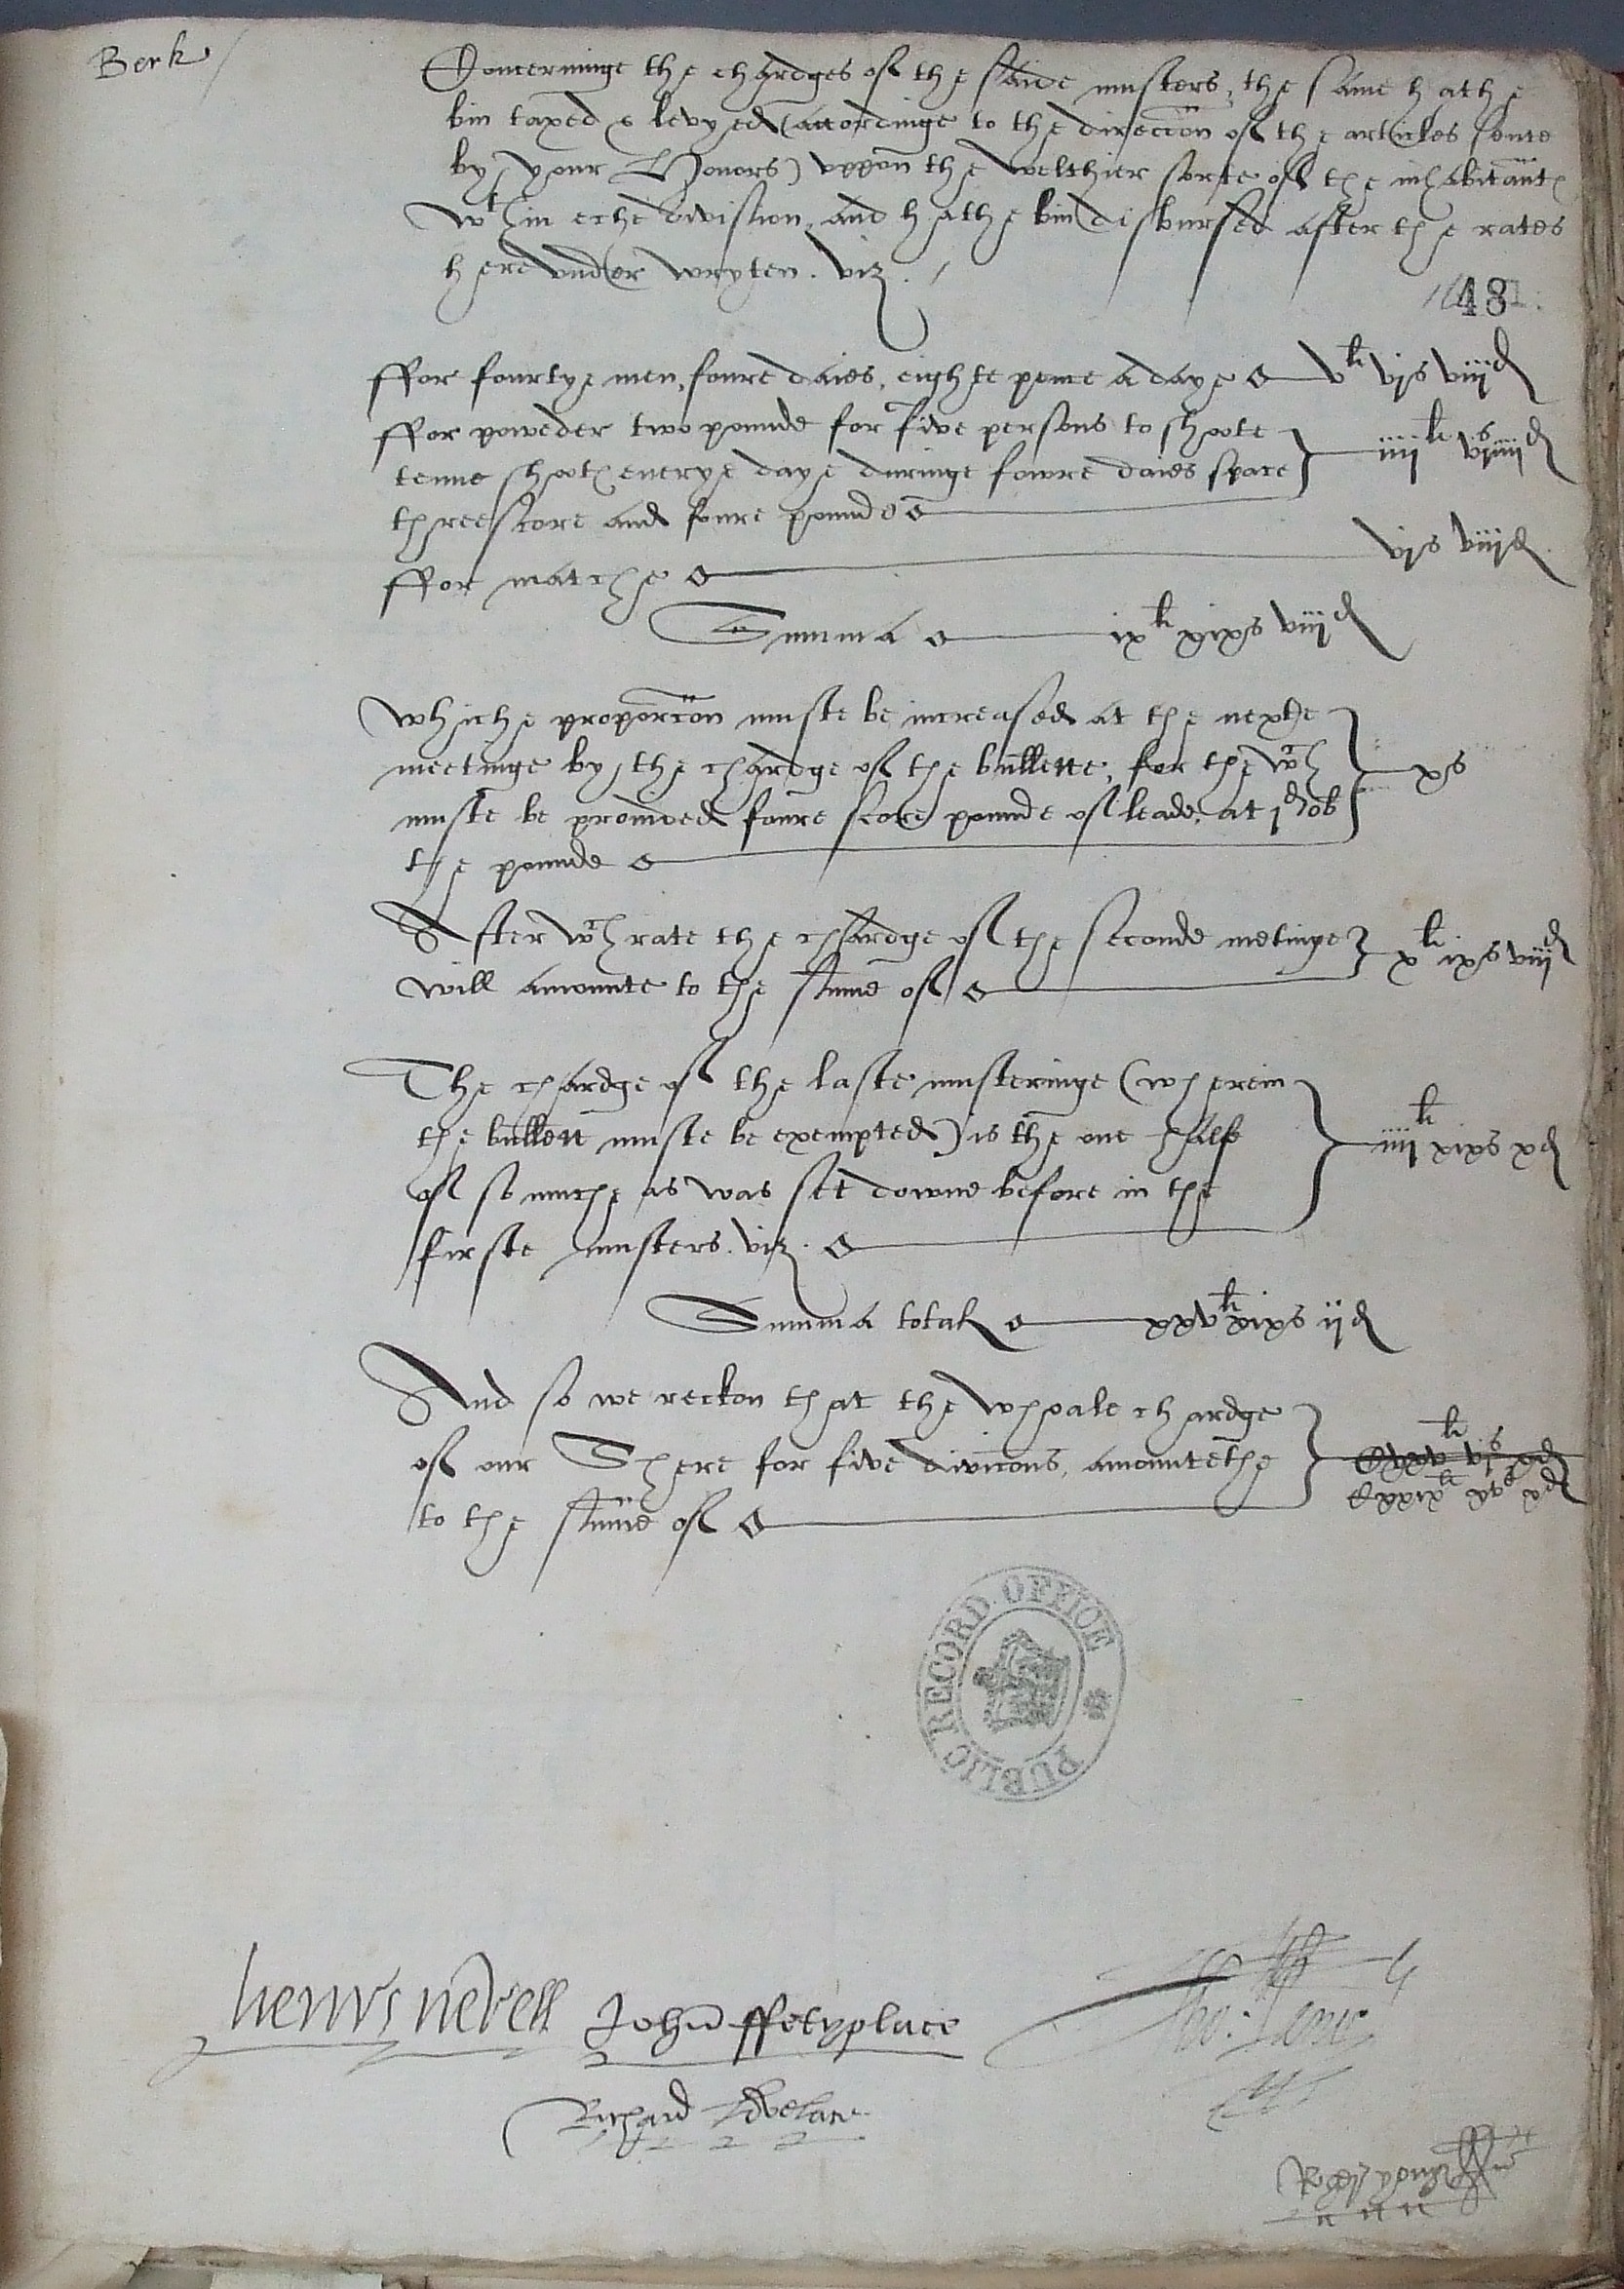 Berk
Concerninge the chardges of the saide musters, the same hathe
bin taxed & levyed (accordinge to the direccon of the articles sente
by your Honors) uppon the welthier sorte of the inhabitant
wth in eche division, and hathe bin disbursed after the rates
here under wryten. viz.
48
ffor fourtye men, foure daies, eighte pence a daye vli vjs viijd
ffor powder two pounde for five persons to shoote
tenne shoot everye daye duringe fowre daies space
threescore and foure pounde iiijli vjs iiijd
ffor matche vjs viijd
Summa ixli xixs viijd
whiche proporcon muste be increased at the nexte
meetinge by the chardge of the bullette, for the wch
muste be provided foure score pounde of leade, at jd ob
the pounde xs
After wch rate the chardge of the seconde metinge
will amounte to the summe of xli ixs viijd
The chardge of the laste musteringe (wherein
the bullett muste be exempted) is the one halfe
of so muche as was set downe before in the
firste musters. viz. iiijli xixs xd
Summa total xxvli xixs ijd
And so we reckon that the whoale chardge
of our Shere for five divicons, amountethe
to the summe of Cxxixli xvs xd
henry nevell John ffetyplace
Richard Lovelace
PUBLIC RECORD OFFICE